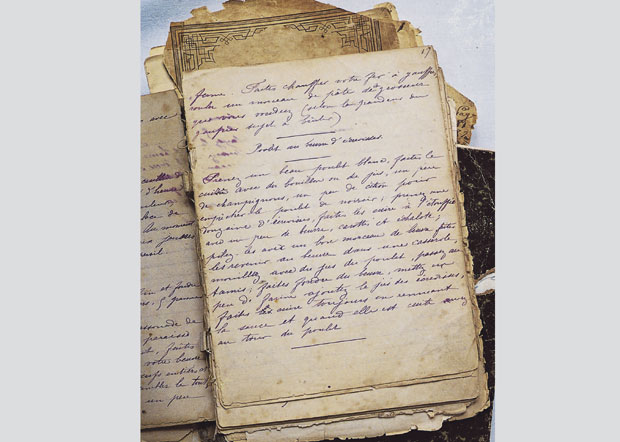 avec
Faites chauffer votre fer à gauffre
un morceau de pâte de grosseur
que vous voudrez (selon la grandeur du
gaufrier sujet à
Poulet au d'écrevisses.
Prenez un beau poulet blanc, faites le
cuire avec du bouillon ou du jus, un peu
de champignons, un peu de citron pour
empêcher le poulet de noircir; prenez une
douzaine d'écrevisses, faites les cuire à l'étouffée
avec un peu de beurre, carotte et échalote;
pilez les avec un bon morceau de beurre faites
les revenir au beurre dans une casserole,
mouillez avec du jus du poulet, passez au
tamis; faites fondre du beurre, mettez un
peu de farine ajoutez le jus des écrevisses,
faites cuire toujours en remuant
la sauce et quand elle est cuite versez
au tour du poulet
et fondre
faites
votre beurre
un peu